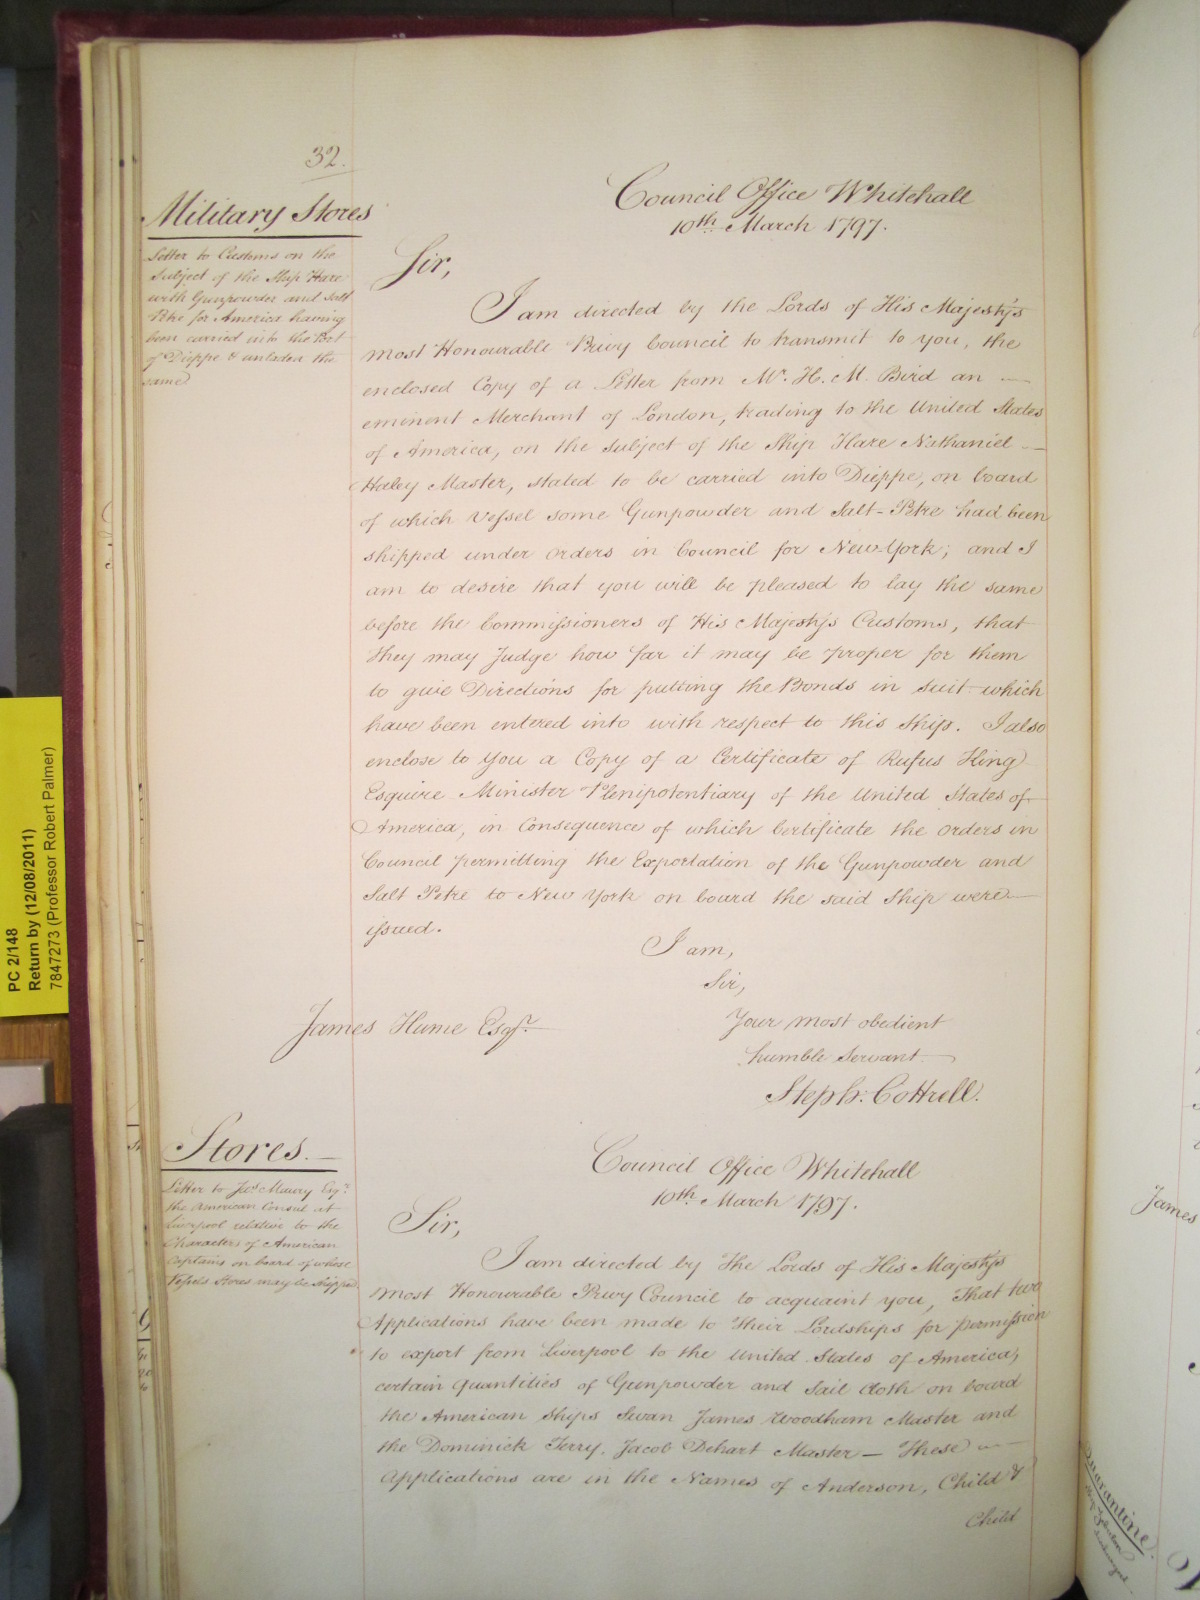 32.
Military Stores
Letter to Customs on the
Subject of the Ship Hare
with Gunpowder and Salt
Petre for America having
been carried into the Port
of Dieppe & unladen the
same
Council Office Whitehall
10th. March 1797.
Sir,
I am directed by the Lords of His Majesty's
most Honourable Privy Council to transmit to you, the
enclosed Copy of a Letter from Mr. H. M. Bird an —
eminent Merchant of London, trading to the United States
of America, on the Subject of the Ship Hare Nathaniel —
Haley Master, stated to be carried into Dieppe, on board
of which Vessel some Gunpowder and Salt-Petre had been
shipped under orders in Council for New-York; and I
am to desire that you will be pleased to lay the same
before the Commissioners of His Majesty's Customs, that
they may Judge how far it may be proper for them
to give Directions for putting the Bonds in suit which
have been entered into with respect to this Ship. I also
enclose to You a Copy of a Certificate of Rufus King
Esquire Minister Plenipotentiary of the United States of
America, in Consequence of which Certificate the Orders in
Council permitting the Exportation of the Gunpowder and
Salt Petre to New York on board the said Ship were
issued.
I am,
Sir,
James Hume Esqr.
Your most obedient
humble Servant
Steph: Cottrell.
Stores. —
Letter to Jas. Maury Esqr.
the American Consul at
Liverpool relative to the
Characters of American
Captains on board of whose
Vessels Stores may be shipped
Council Office Whitehall
10th. March 1797.
Sir,
I am directed by the Lords of His Majesty's
most Honourable Privy Council to acquaint you, That two
Applications have been made to their Lordships for permission
to export from Liverpool to the United States of America,
certain Quantities of Gunpowder and Sail Cloth on board
the American Ships Swan James Woodham Master and
the Dominick Terry, Jacob Dehart Master — These —
Applications are in the Names of Anderson, Child &
Child
PC 2/148
Return by (12/08/2011)
7847273 (Professor Robert Palmer)
James
Quarantine.